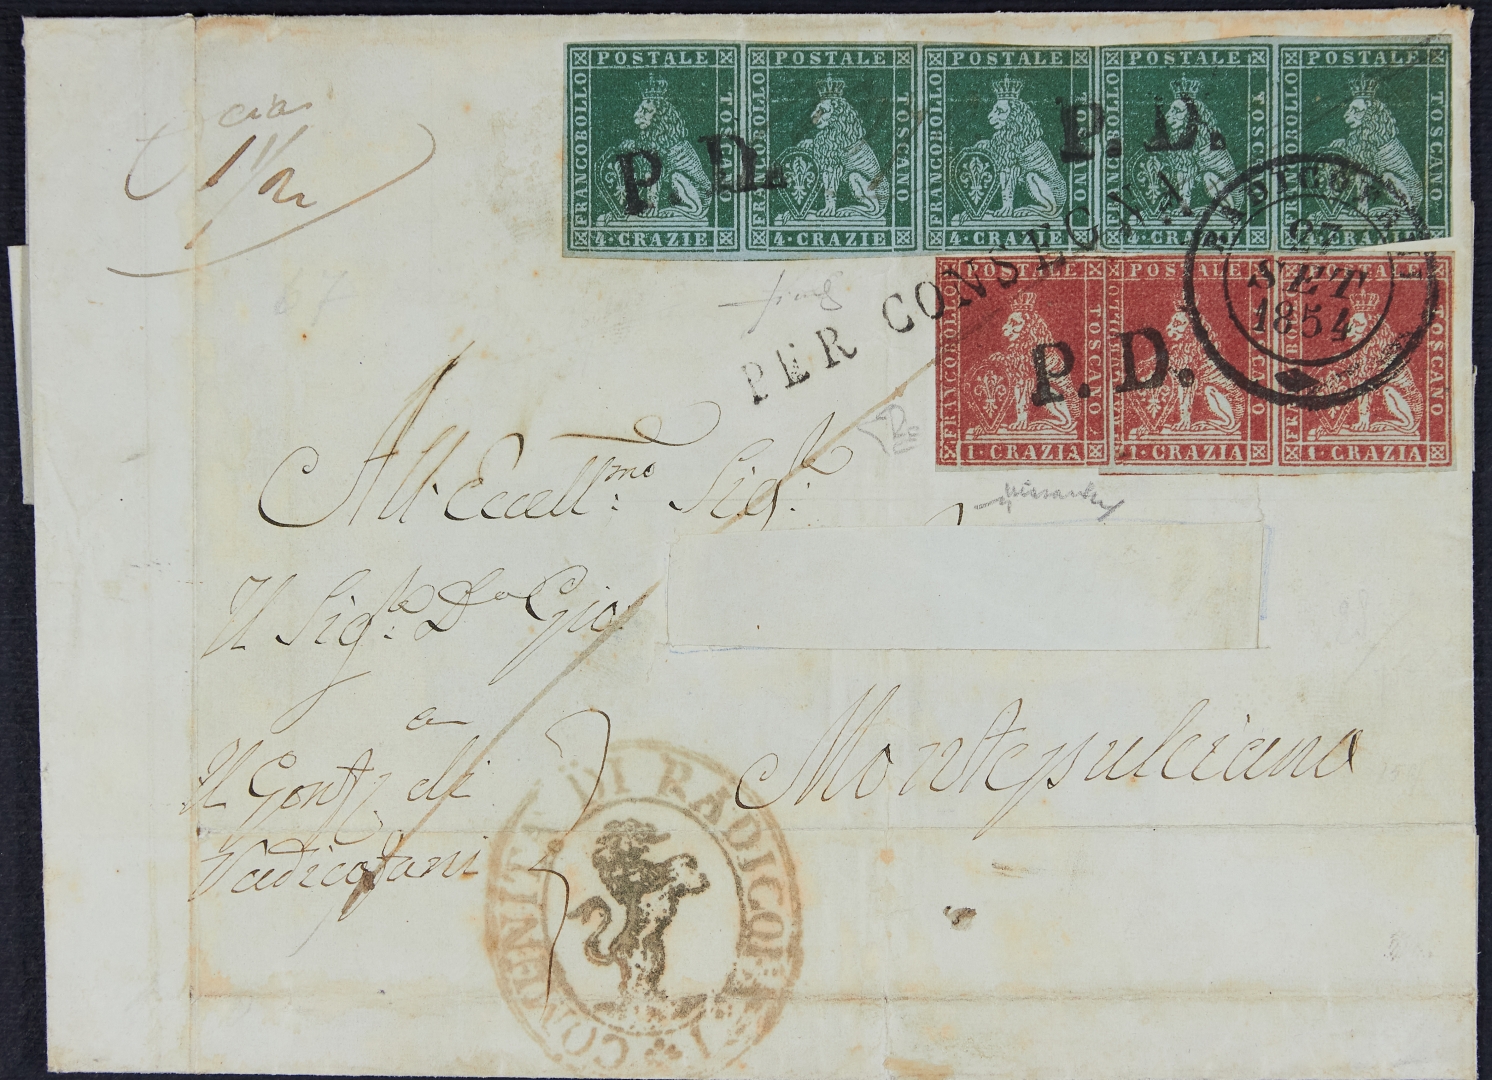 cia
1/2
FRANCOBOLLO POSTALE TOSCANO
4·CRAZIE
FRANCOBOLLO POSTALE TOSCANO
4·CRAZIE
FRANCOBOLLO POSTALE TOSCANO
4·CRAZIE
FRANCOBOLLO POSTALE TOSCANO
4·CRAZIE
FRANCOBOLLO POSTALE TOSCANO
4·CRAZIE
P. D.
P. D.
PER CONSEGNA
27
SET
1854
FRANCOBOLLO POSTALE TOSCANO
1·CRAZIA
FRANCOBOLLO POSTALE TOSCANO
1·CRAZIA
FRANCOBOLLO POSTALE TOSCANO
1·CRAZIA
P. D.
All Eccell.mo Sig.e
Il Sig.e Do Gio:
a
Montepulciano
Il Gonf. di
Radicofani
COMUNITA DI RADICOFANI